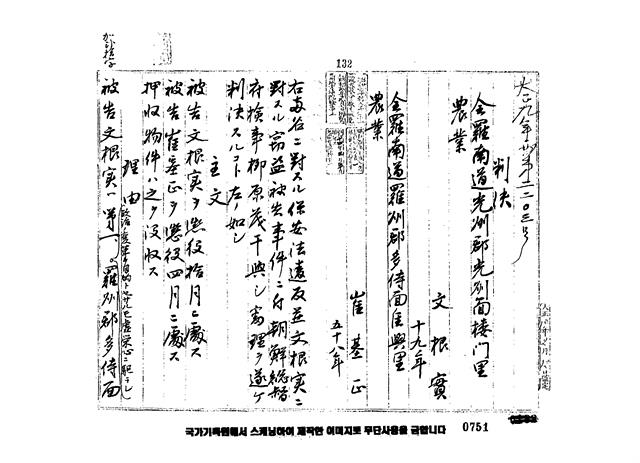 132
大正九年刑第一二〇三号
判決
全羅南道光州郡光州面楼門里
農業
文根實
十九年
全羅南道羅州郡多侍面佳興里
農業
崔基正
五十八年
右両名ニ對スル保安法違反並文根実ニ
對スル窃盗被告事件ニ付朝鮮総督
府検事柳原茂干與シ審理ヲ遂ケ
判決スルコト左ノ如シ
主文
被告文根実ヲ懲役拾月ニ處ス
被告崔基正ヲ懲役四月ニ處ス
押収物件ハ之ヲ没収ス
理由
被告文根実ハ第一、羅州郡多侍面
국가기록원에서 스캐닝하여 제작한 이미지로 무단사용을 금합니다
0751